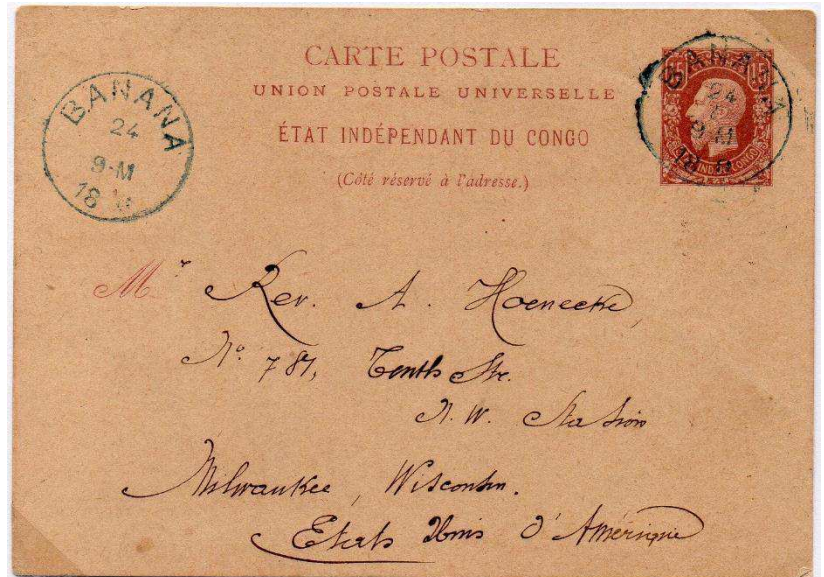 CARTE POSTALE
UNION POSTALE UNIVERSELLE
ÉTAT INDÉPENDANT DU CONGO
(Côté réservé à l'adresse.)
BANANA
24
9-M
18
BANANA
24
9-M
18
15 15
ETAT IND. DU CONGO
M.r Rev. A. Hoenecke
No. 787, Tenth Str.
N. W. Station
Milwaukee, Wisconsin.
Etats Unis d'Amérique